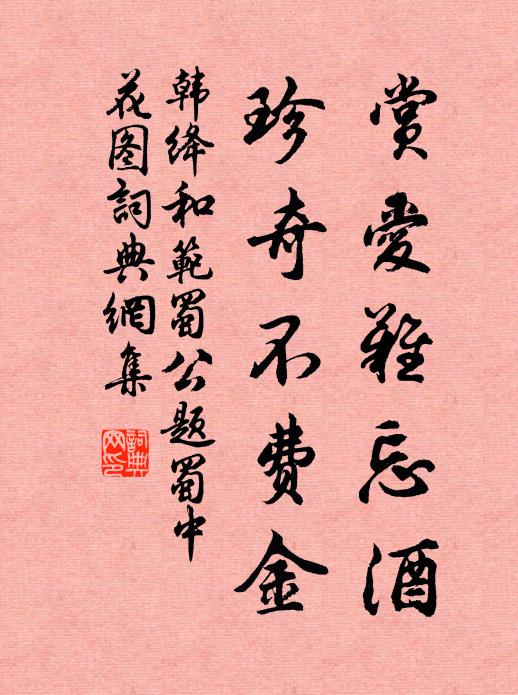 赏爱难忘酒
珍奇不费金
韩绛和範蜀公题蜀中
花图詞典網集
詞典网印